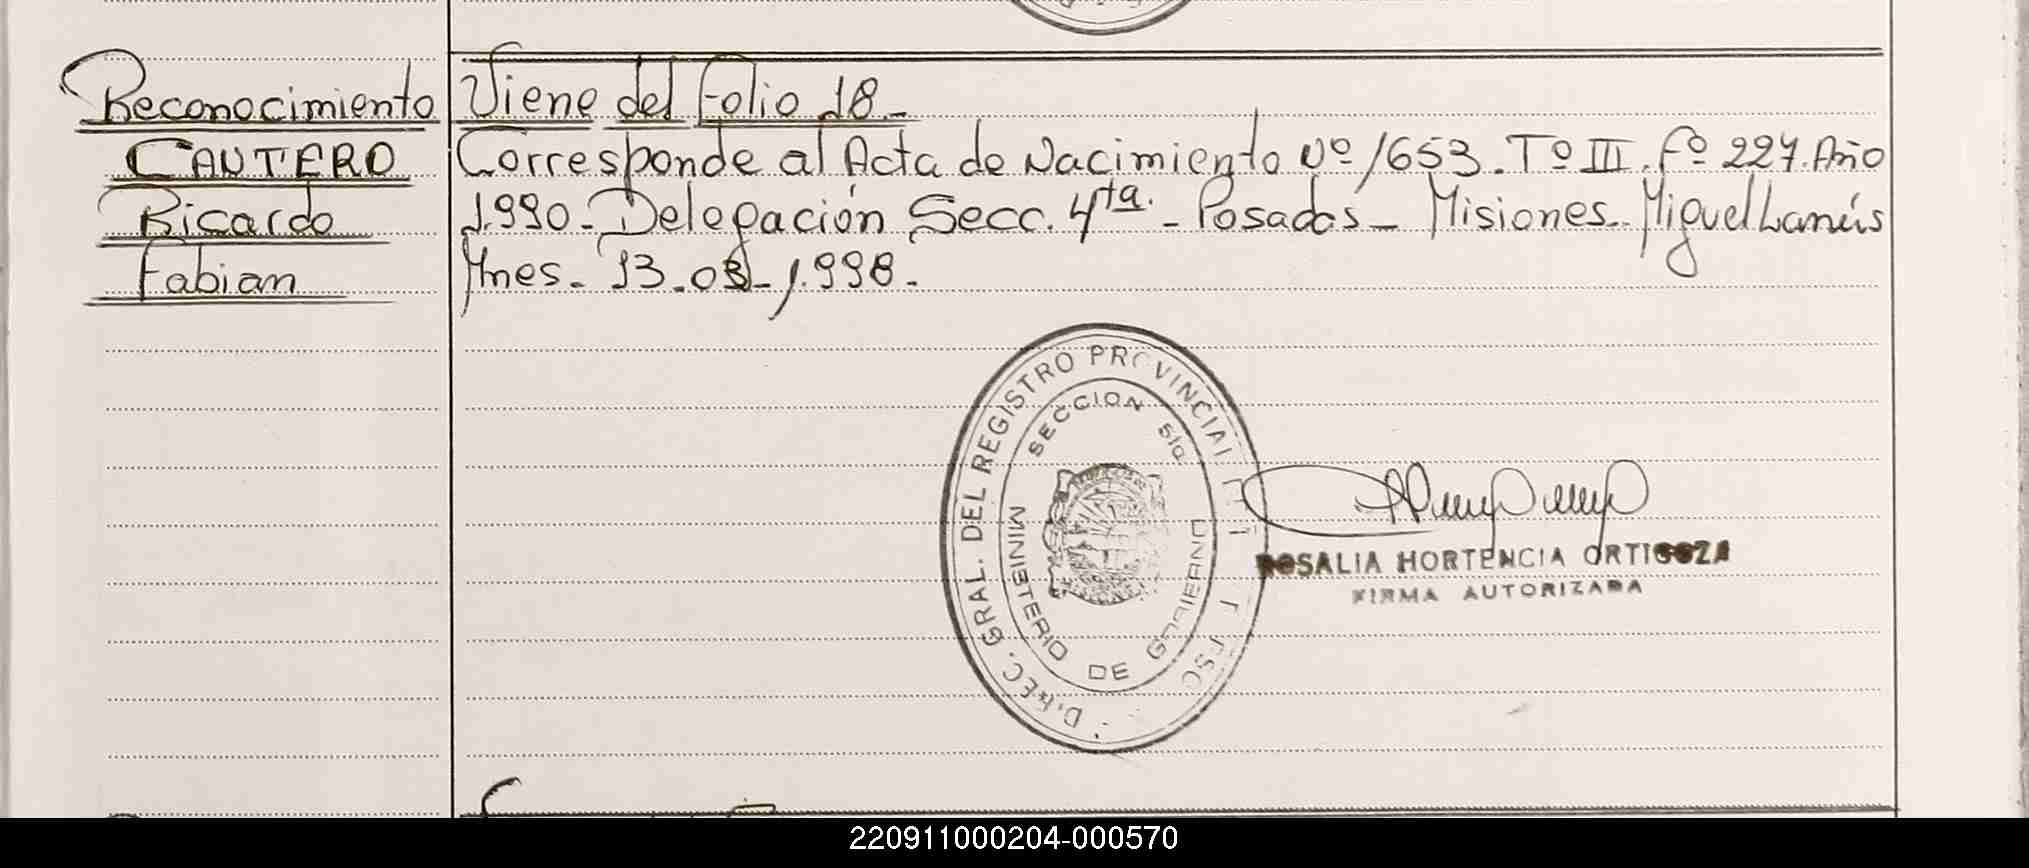 Reconocimiento
CAUTERO
Ricardo
Fabian
Viene del Folio 18.-
Corresponde al Acta de Nacimiento Nº 1653. Tº III. Fº 227. Año
1.990.- Delegación Secc. 4ta. - Posadas - Misiones. Miguel Lanús
Mnes. 13.03-1.998.-
GRAL. DEL REGISTRO PROVINCIAL
SECCION 5ta
MINISTERIO DE GOBIERNO
ROSALIA HORTENCIA ORTIGOZA
FIRMA AUTORIZADA
220911000204-000570